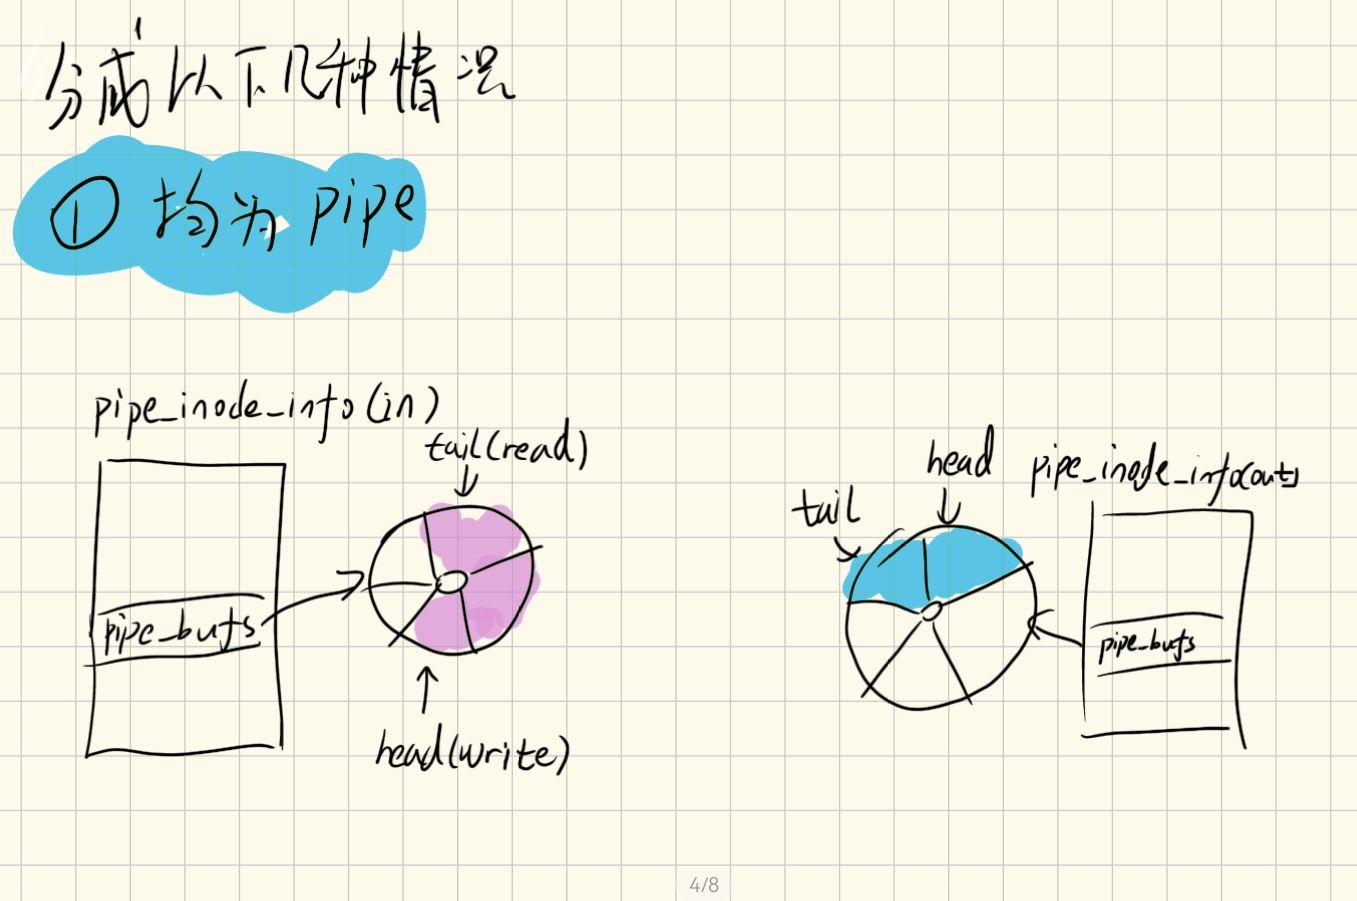 分成以下几种情况
① 均为 pipe
pipe_inode_info(in)
tail(read)
pipe_bufs
head(write)
head
pipe_inode_info(out)
tail
pipe_bufs
4/8